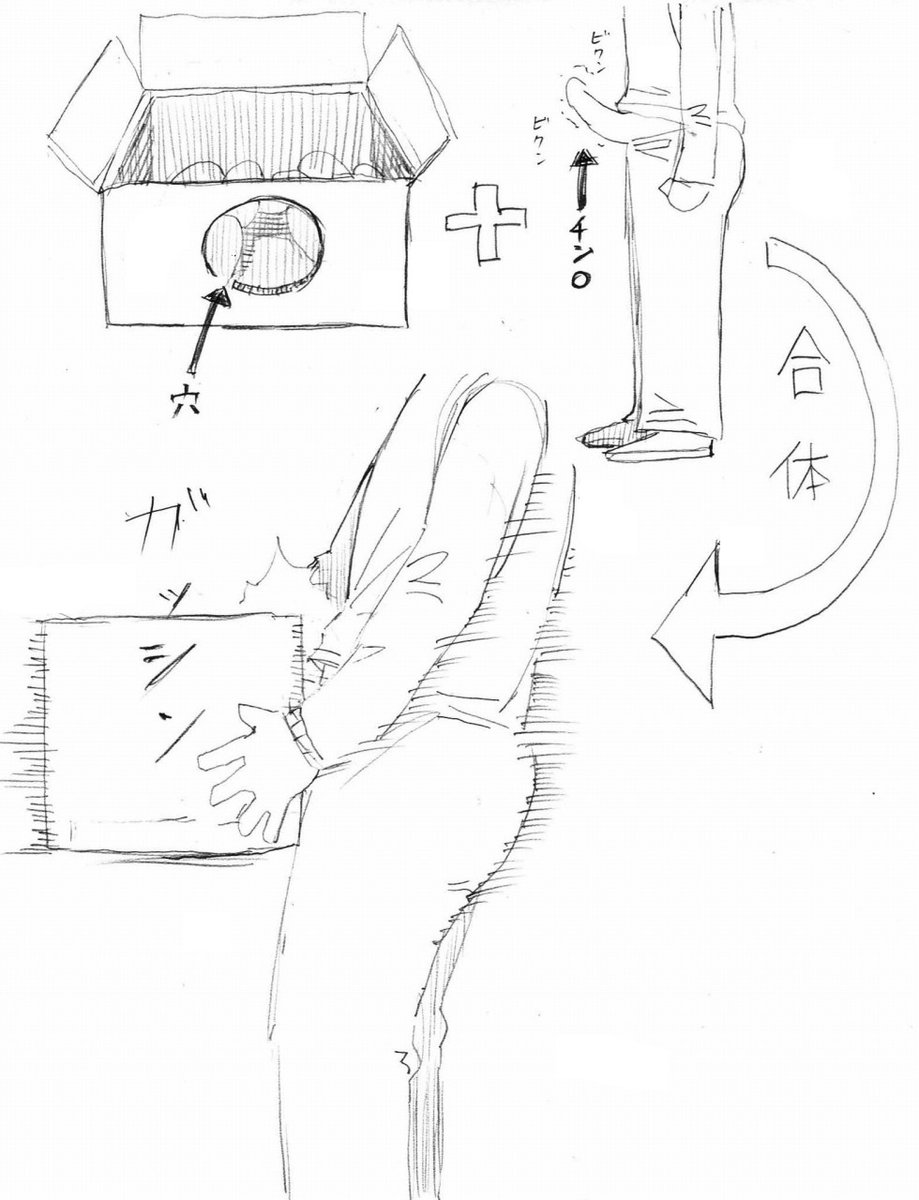 ビクン
ビクン
チン〇
穴
合体
ガッシッ